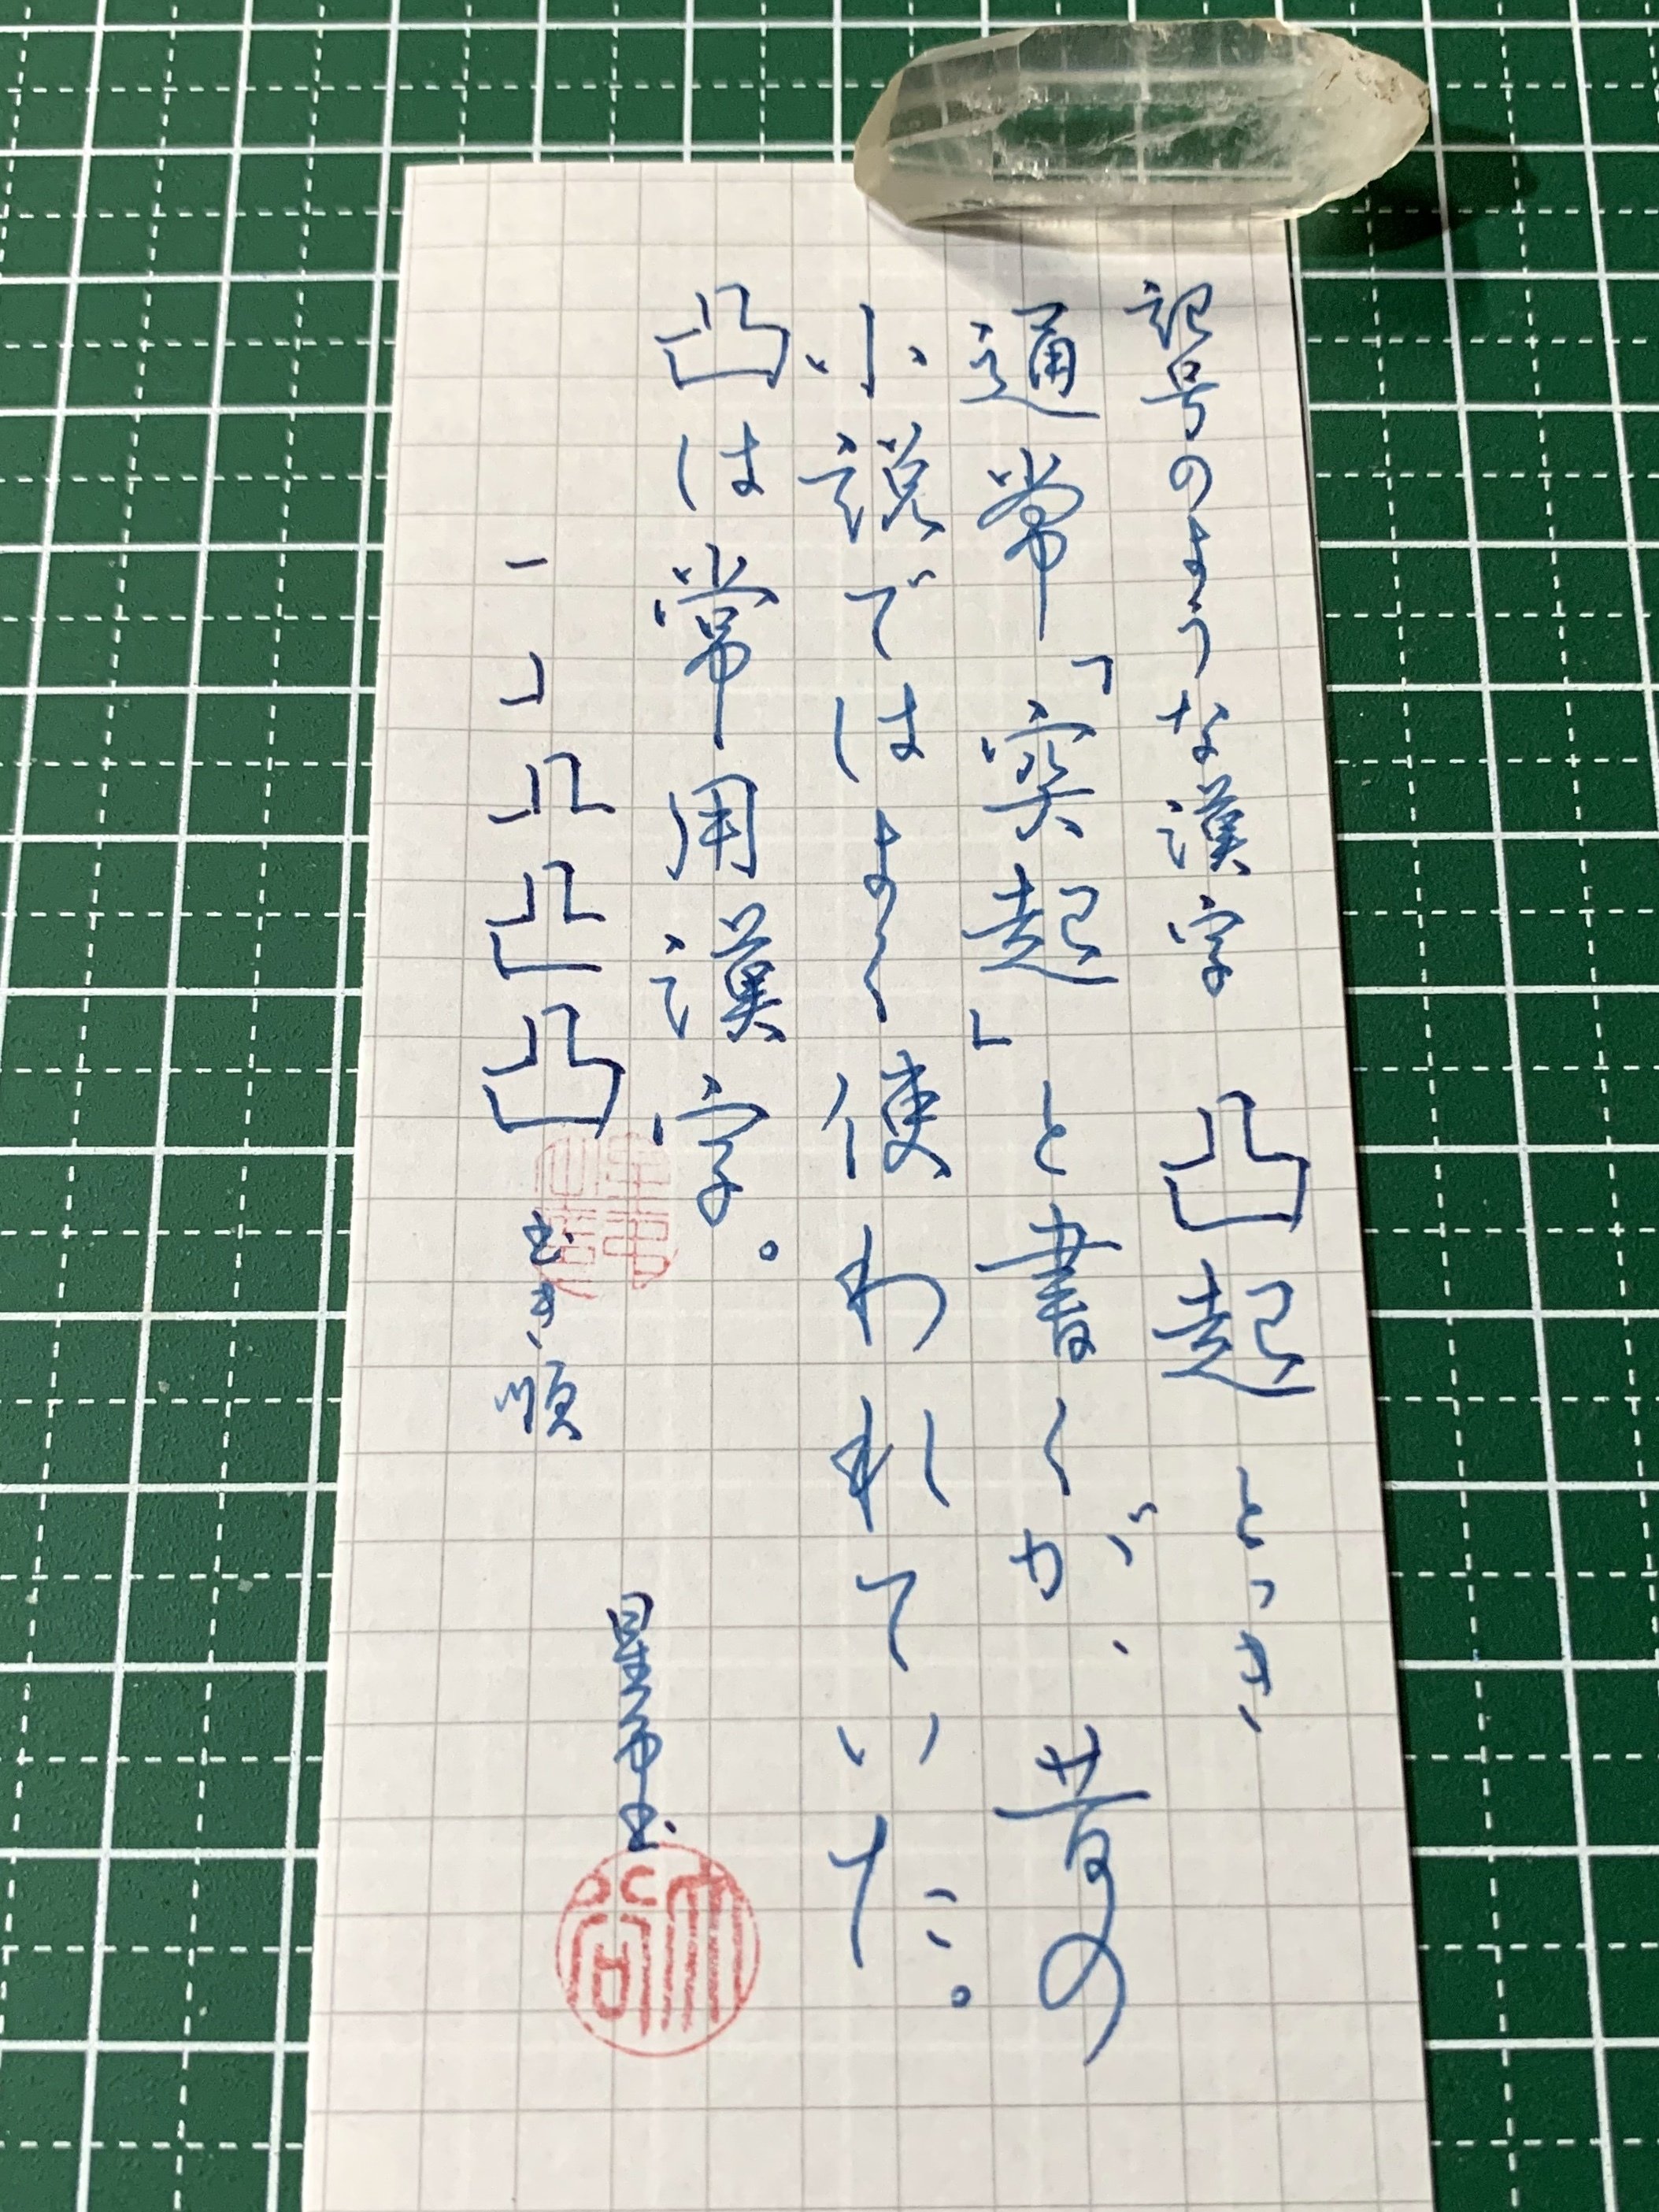 記号のような漢字　凸起　とっき
通常「突起」と書くが、昔の
小説ではよく使われていた。
凸は常用漢字。
凸　かき順